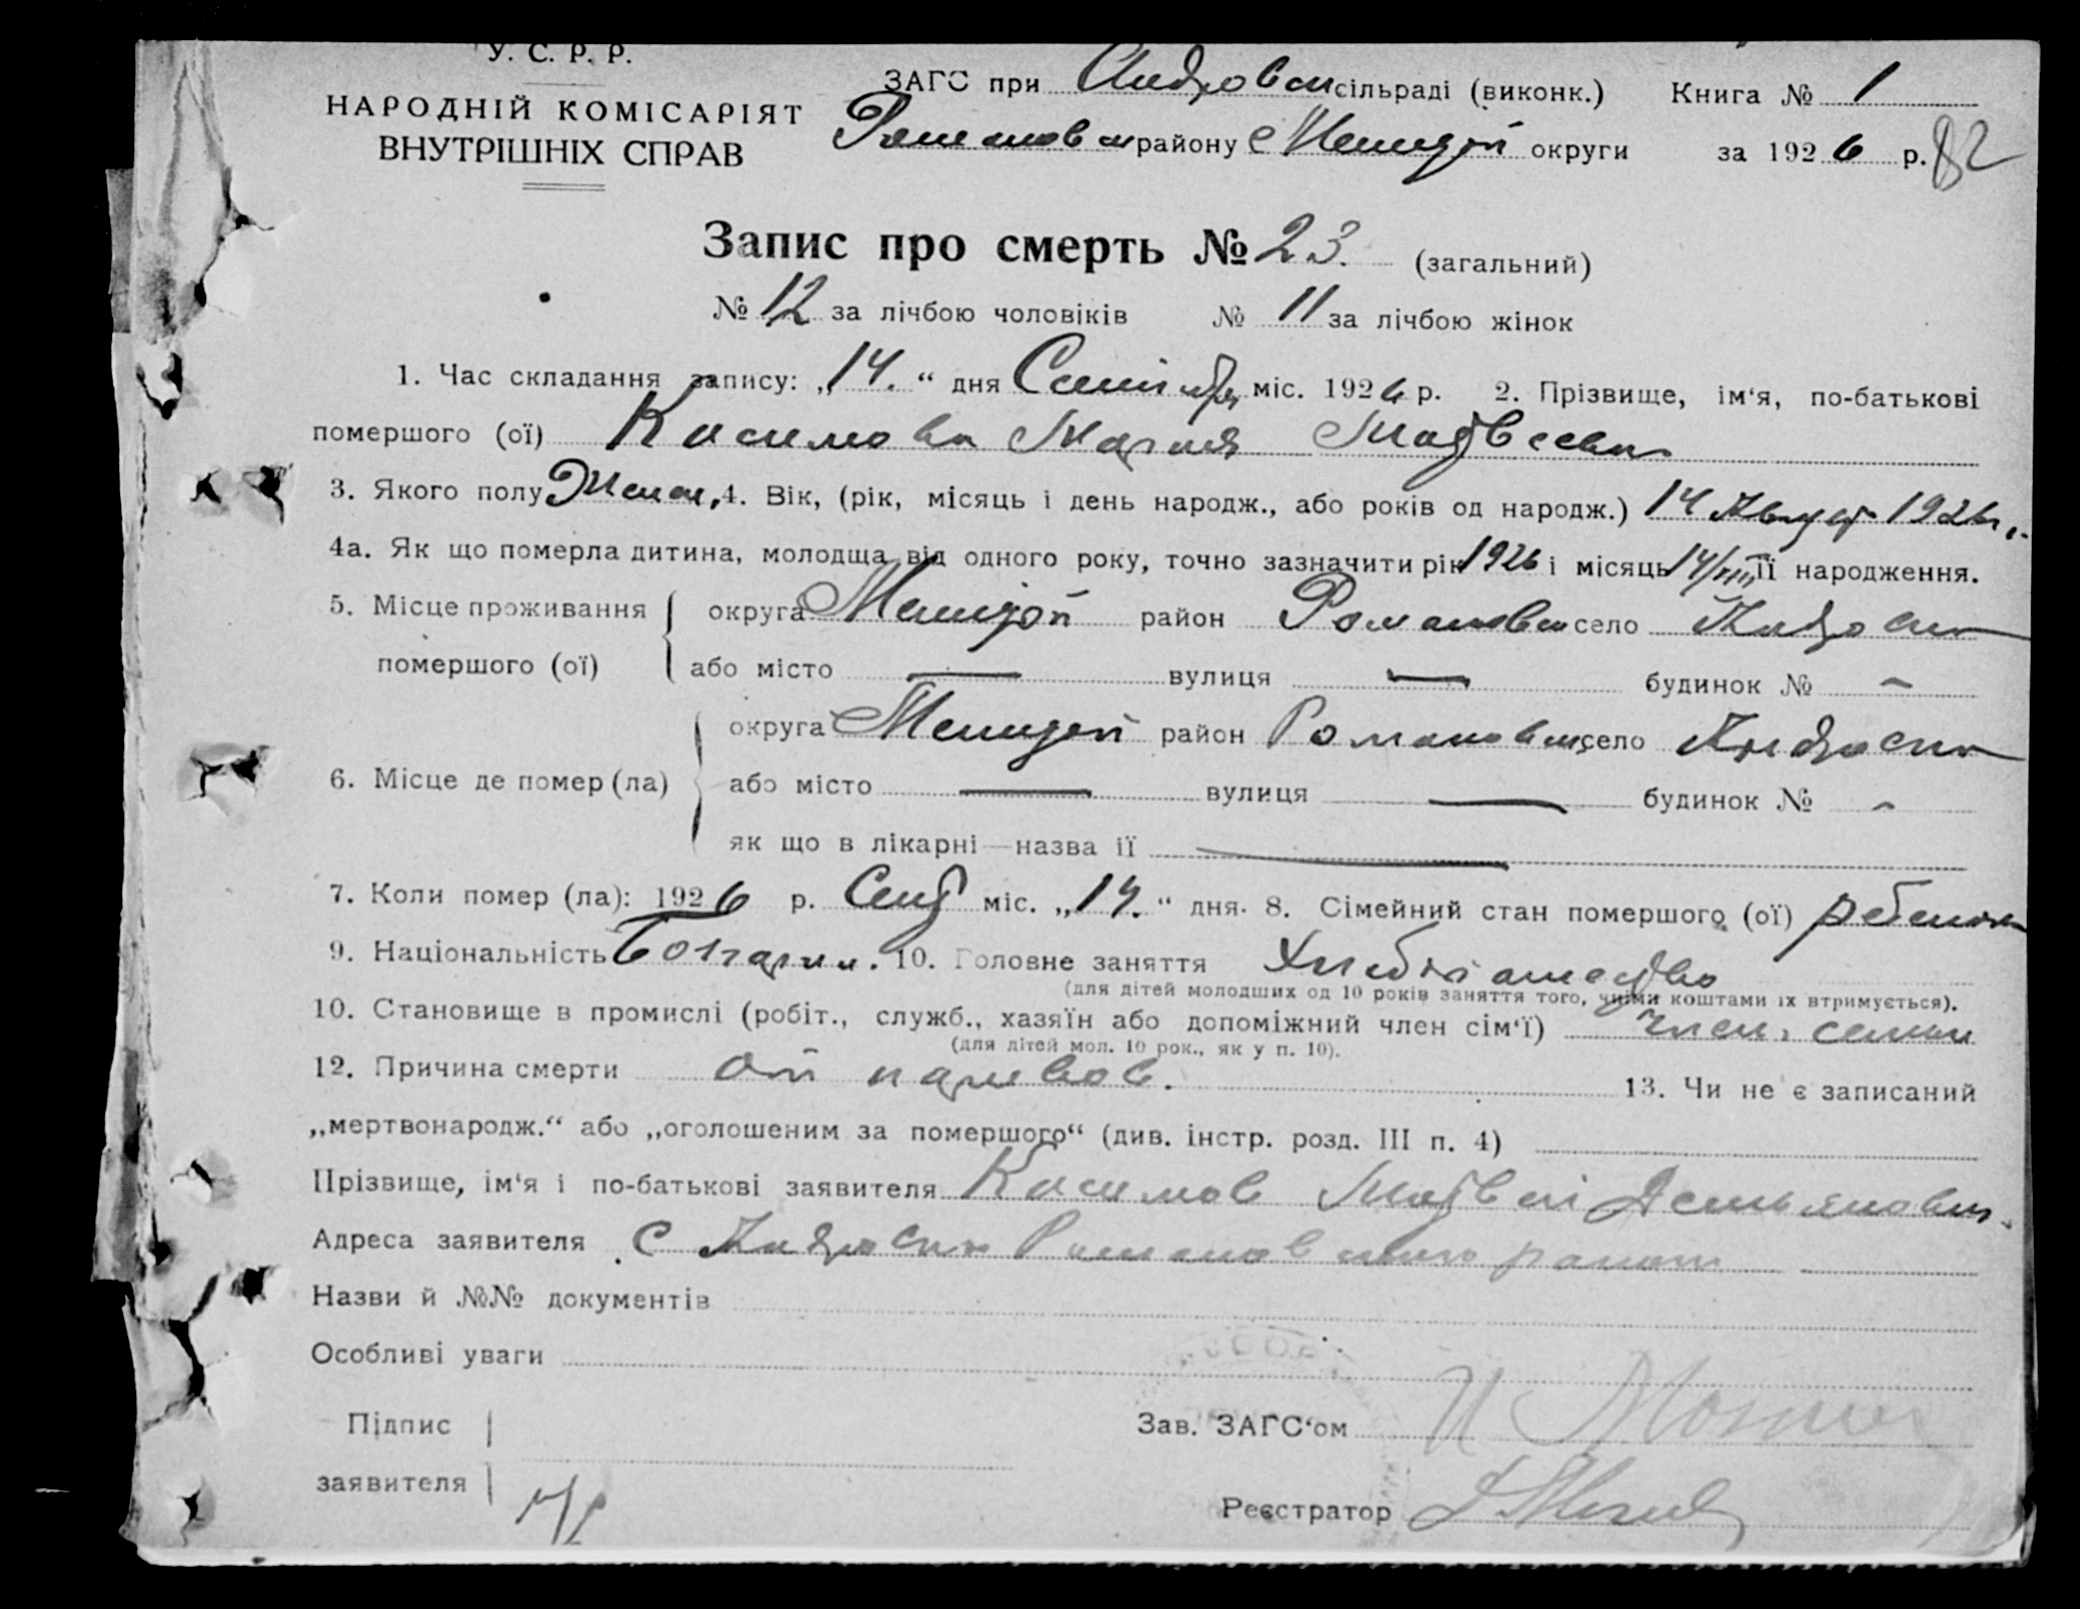 У. С. Р. Р.
НАРОДНІЙ КОМІСАРІЯТ
ВНУТРІШНІХ СПРАВ
ЗАГС при Андровск сільраді (виконк.) Книга № 1
Романовск району Мелитоп округи за 1926 р. 82
Запис про смерть № 23. (загальний)
№ 12 за лічбою чоловіків № 11 за лічбою жінок
1. Час складання запису: „14.“ дня Сентября міс. 1926 р. 2. Прізвище, ім‘я, по-батькові
помершого (ої) Касимова Мария Матвеевна
3. Якого полу Женск. 4. Вік, (рік, місяць і день народж., або років од народж.) 14 Август 1926 г.
4а. Як що померла дитина, молодща від одного року, точно зазначити рік 1926 і місяць 14/VIII її народження.
5. Місце проживання округа Мелитоп район Романовск село
помершого (ої) або місто — вулиця — будинок № –
округа Мелитоп район Романовск село
6. Місце де помер (ла) або місто — вулиця — будинок № –
як що в лікарні—назва ії —
7. Коли помер (ла): 1926 р. Сент міс. „14.“ дня. 8. Сімейний стан помершого (ої) ребенок
9. Національність Болгарин. 10. Головне заняття Хлебопашество
(для дітей молодших од 10 років заняття того, чиїми коштами їх втримується).
10. Становище в промислі (робіт., служб., хазяїн або допоміжний член сім‘ї) член. семьи
(для дітей мол. 10 рок., як у п. 10).
12. Причина смерти от 13. Чи не є записаний
„мертвонародж.“ або „оголошеним за помершого“ (див. інстр. розд. III п. 4)
Прізвище, ім‘я і по-батькові заявителя Касимов Матвей Демьянович.
Адреса заявителя С Романовского района
Назви й №№ документів
Особливі уваги
Підпис
заявителя н/г
Зав. ЗАГС‘ом
Реєстратор